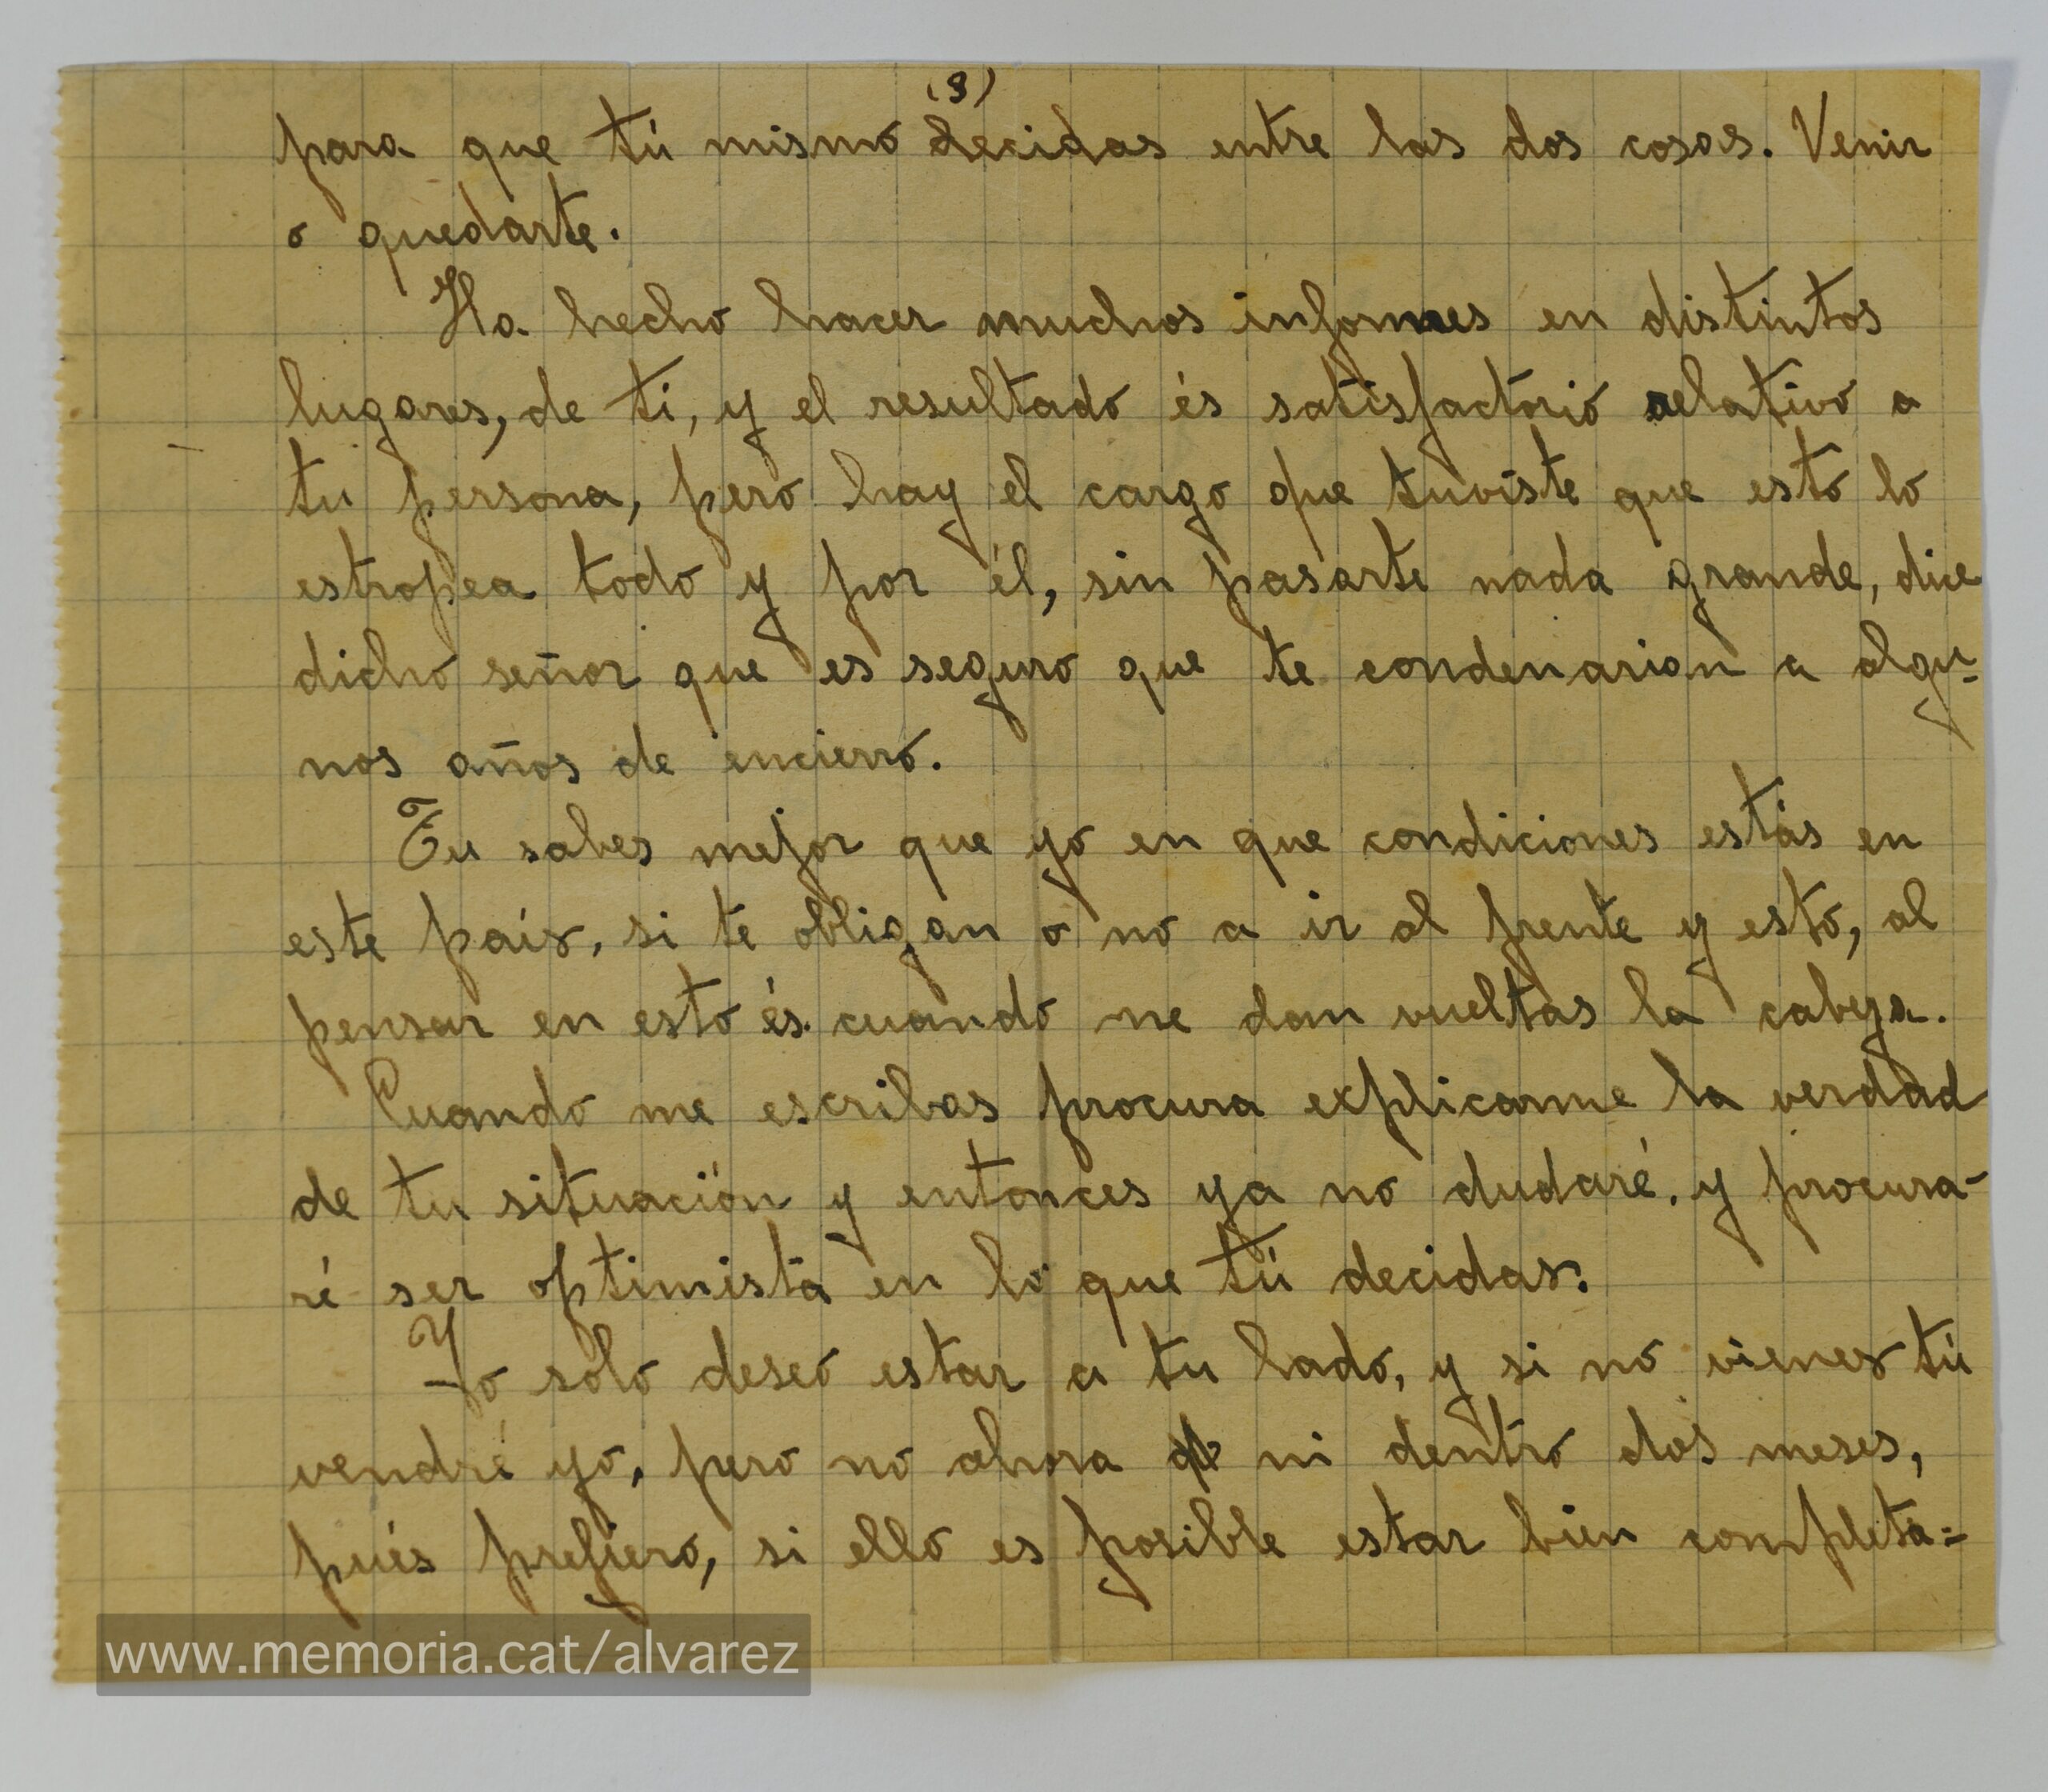 (3)
para que tú mismo decidas entre las dos cosas. Venir
o quedarte.
Ha hecho hacer muchos informes en distintos
lugares, de ti, y el resultado és satisfactorio relativo a
tu persona, pero hay el cargo que tuviste que esto lo
estropea todo y por él, sin pasarte nada grande, dice
dicho señor que es seguro que te condenarian a algu-
nos años de encierro.
Tu sabes mejor que yo en que condiciones estás en
este país, si te obligan o no a ir al frente y esto, al
pensar en esto és cuando me dan vueltas la cabeza.
Cuando me escribas procura explicarme la verdad
de tu situación y entonces ya no dudaré, y procura-
ré ser optimista en lo que tú decidas.
Yo solo deseo estar a tu lado, y si no vienes tú
vendré yo, pero no ahora ni dentro dos meses,
pués prefiero, si ello es posible estar bien completa=
www.memoria.cat/alvarez